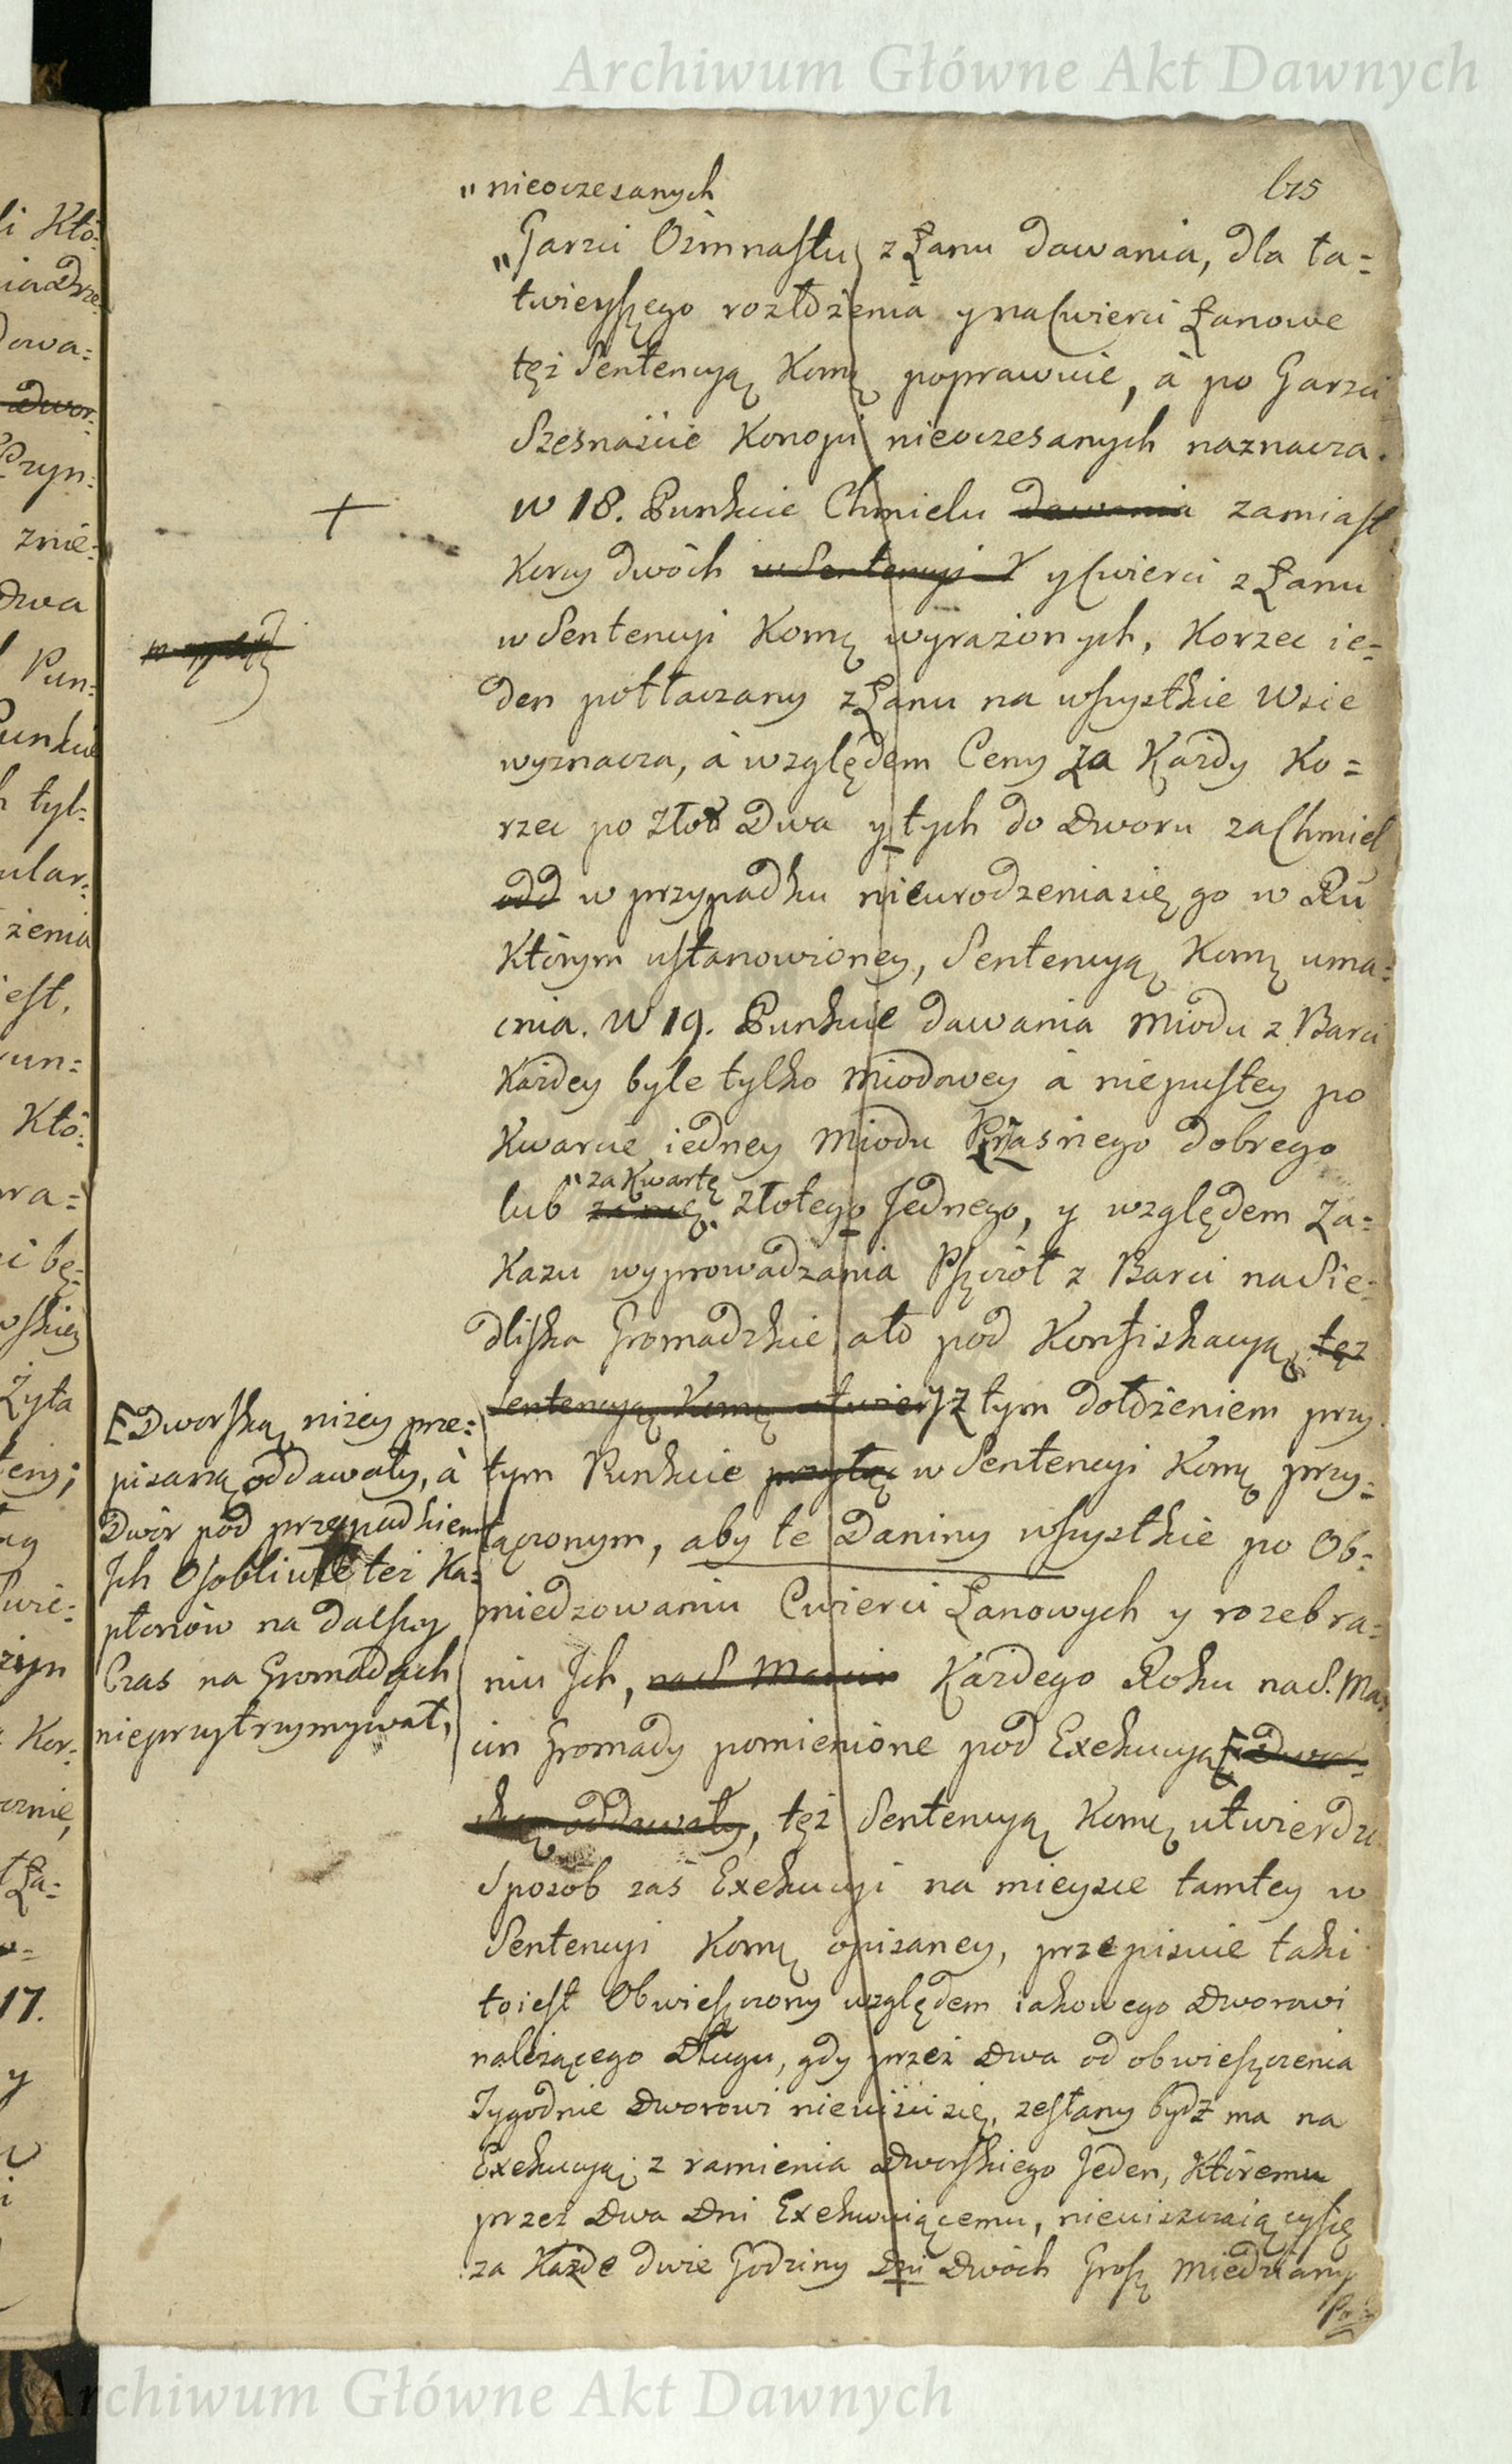 Archiwum Główne Akt Dawnych
"nieoczesanych
"Garzci Ośmnastu z Łanu dawania, dla ła=
twieyszego rozłożenia y na Cwierci Łanowe
tęż Sentencyą Komę poprawuie, à po Garzci
Szesnaście Konopi nieoczesanych naznacza.
W 18. Punkcie Chmielu dawania zamiast
Korcy dwóch w Sentencyi K y Cwierci z Łanu
w Sentencyi Komę wyrażonych, Korzec ie=
den potłaczany z Łanu na wszystkie Wsie
wyznacza, à względem Ceny za Każdy Ko=
rzec po Złot Dwa y tych do Dworu za Chmiel
odd w przypadku nieurodzenia się go w Ru
Którym ustanowioney, Sentencyą Komę uma=
cnia. W 19. Punkcie dawania Miodu z Barci
Każdey byle tylko Miodowey à niepustey po
Kwarcie iedney Miodu Praśnego dobrego
"za Kwartę
lub złotego Jednego, y względem Za=
Kazu wyprowadzania Pszczół z Barci na Sie=
dliska Gromadzkie, ato pod Konfiskacyą tęż
Sentencyą Komę utwier y z tym dołożeniem przy
tym Punkcie w Sentencyi Komę przy=
łączonym, aby te Daniny wszystkie po Ob=
miedzowaniu Cwierci Łanowych y rozebra=
niu Ich, na S. Marcin Każdego Roku na S. Mar
cin Gromady pomienione pod Exekucyą Dwor=
ską oddawały, tęż Sentencyą Komę utwierdza
Sposób zaś Exekucyi na mieysce tamtey w
Sentencyi Komę opisaney, przepisuie taki
toiest Obwieszczony względem iakowego Dworowi
należącego Długu, gdy przez Dwa od obwieszczenia
Tygodnie Dworowi nieuiści się, zesłany bydź ma na
Exekucyą z ramienia Dworskiego Jeden, Któremu
przez Dwa Dni Exekwuiącemu, nieuiszczaiący się
za Każde dwie Godziny Dni Dwóch Grosz Miedziany
E Dworską niżey prze=
pisaną oddawały, à
Dwór pod przepadkiem
Ich Osobliwie też Ka=
płonów na dalszy
Czas na Gromadach
nieprzytrzymywał,
Archiwum Główne Akt Dawnych